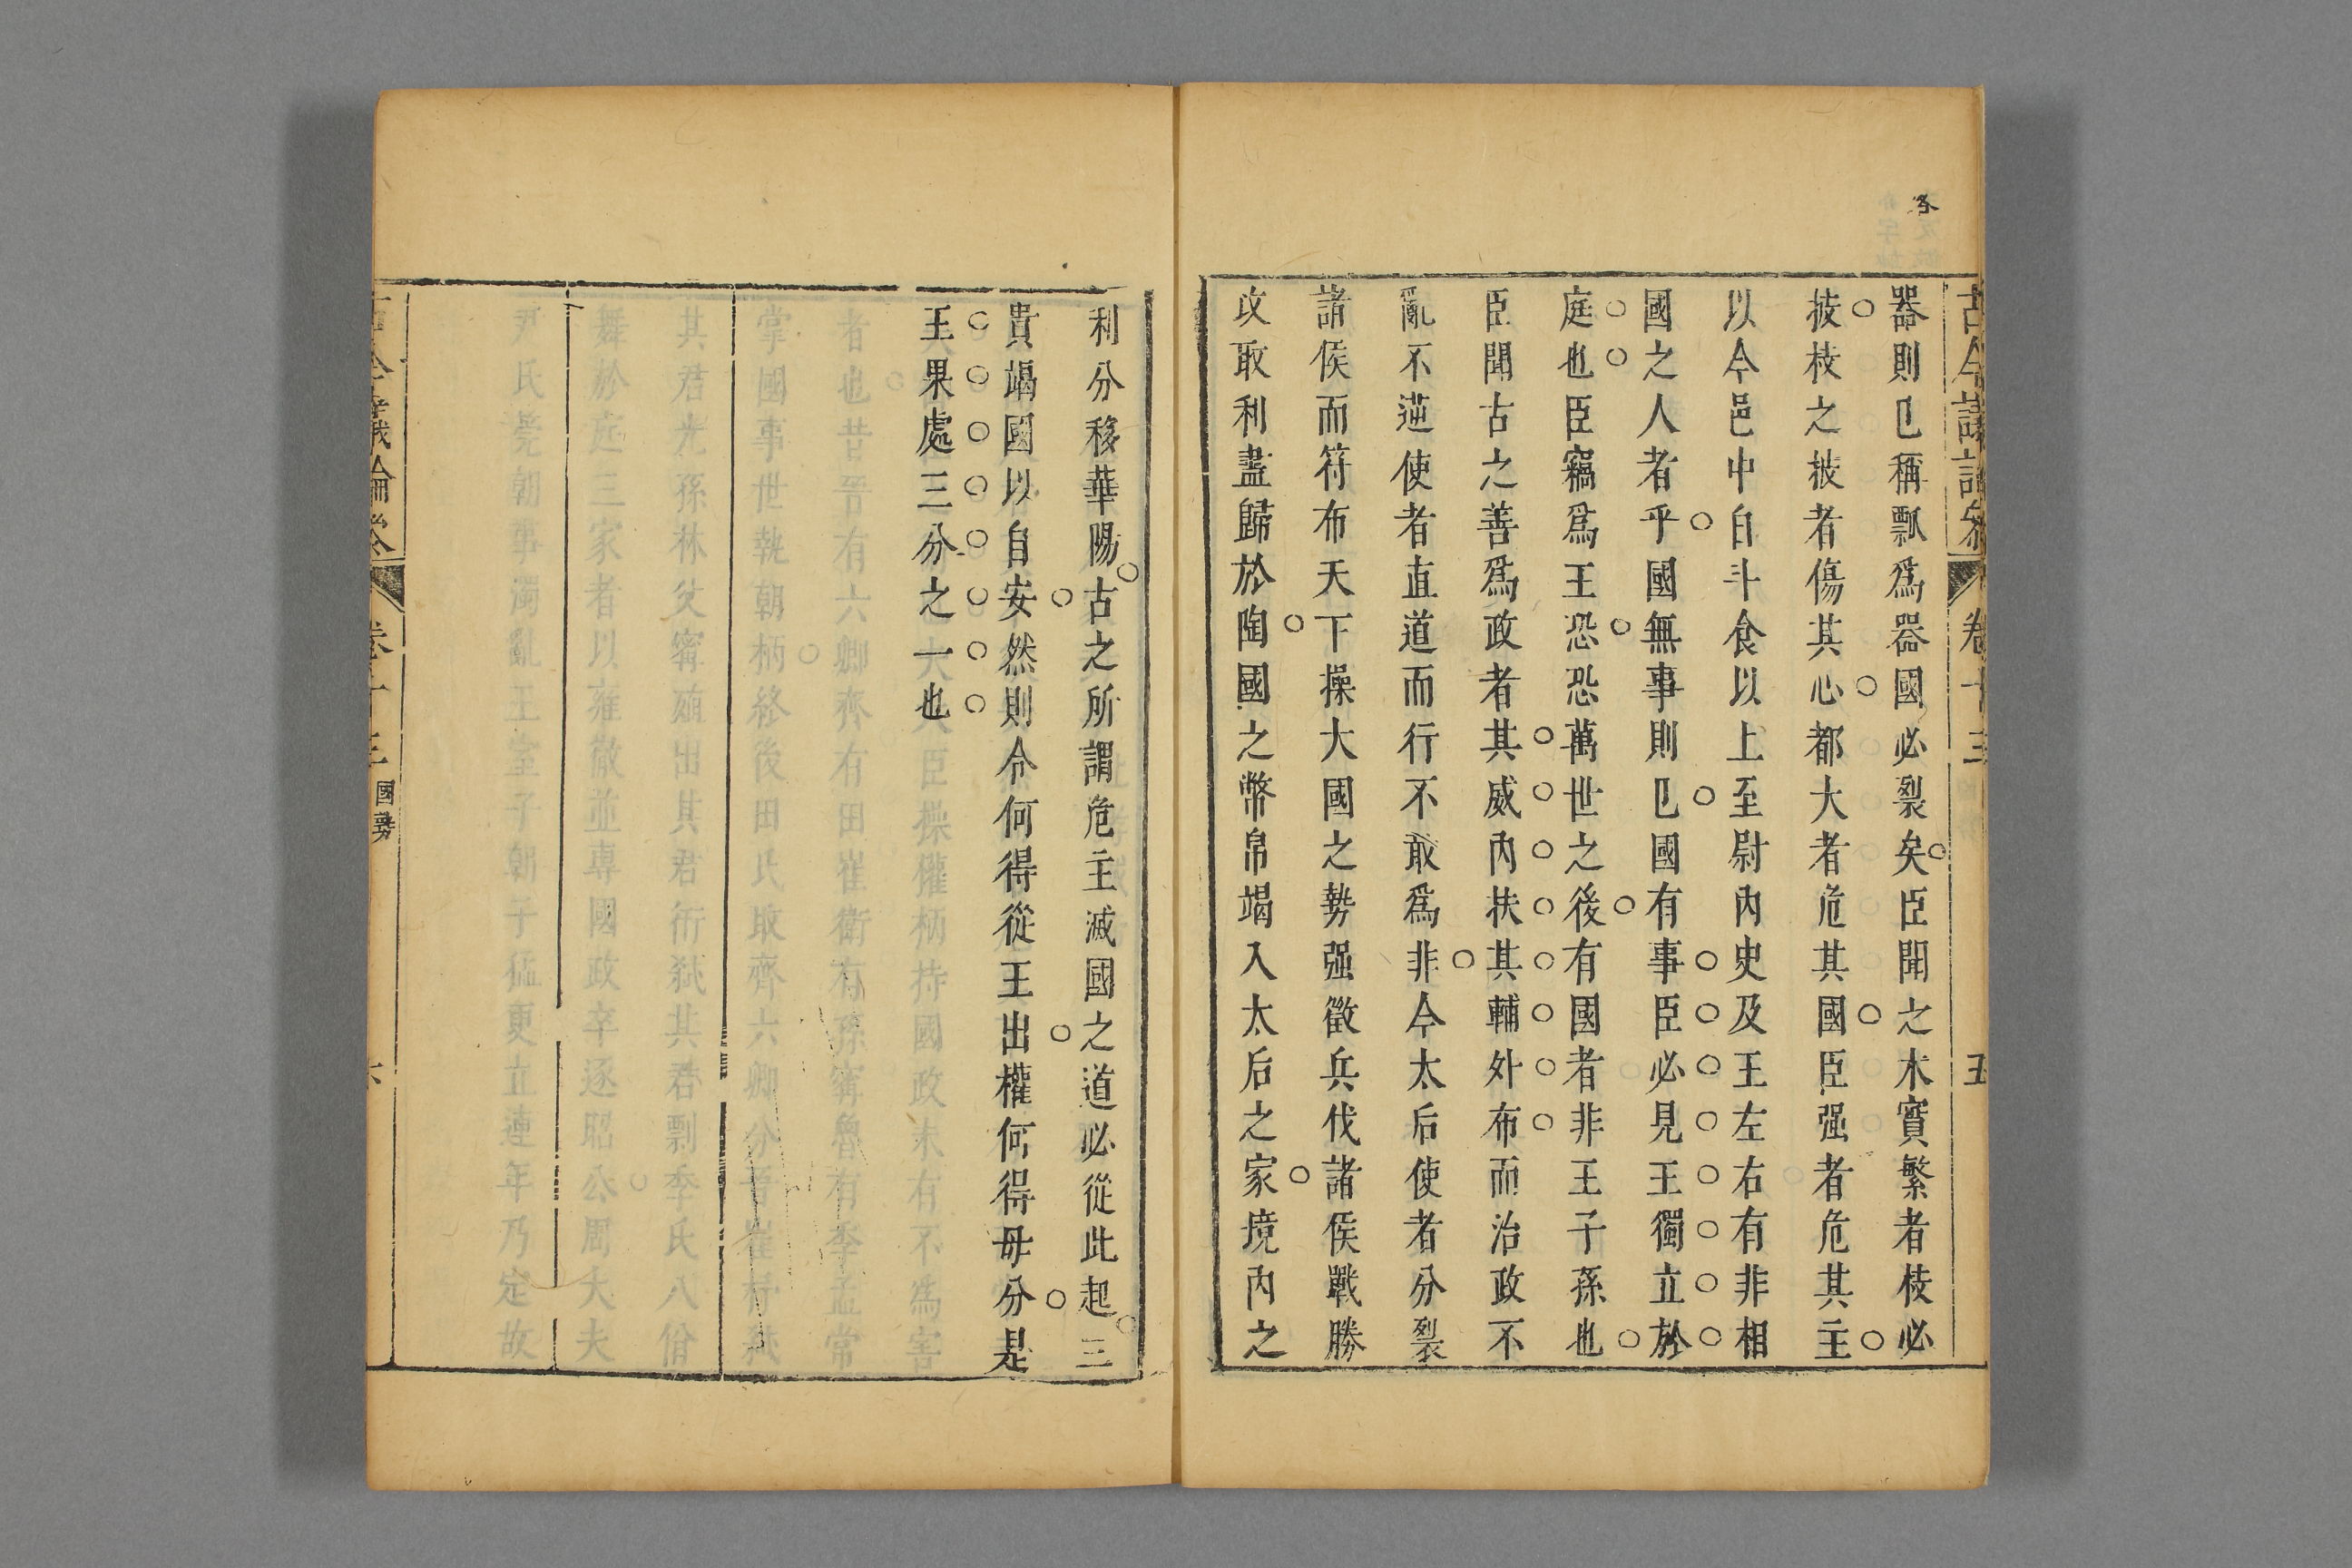 古今議論參 卷十三 五
器則已稱瓢爲器國必裂矣臣聞之木實繁者枝必
披枝之披者傷其心都大者危其國臣强者危其主
以今邑中自斗食以上至尉內史及王左右有非相
國之人者乎國無事則已國有事臣必見王獨立於
庭也臣竊爲王恐恐萬世之後有國者非王子孫也
臣聞古之善爲政者其威內扶其輔外布而治政不
亂不逆使者直道而行不敢爲非今太后使者分裂
諸侯而符布天下操大國之勢强徵兵伐諸侯戰勝
攻取利盡歸於陶國之幣帛竭入太后之家境內之
利分移華陽古之所謂危主滅國之道必從此起三
貴竭國以自安然則令何得從王出權何得毋分是
王果處三分之一也
古今議論參 卷十三 國勢 六